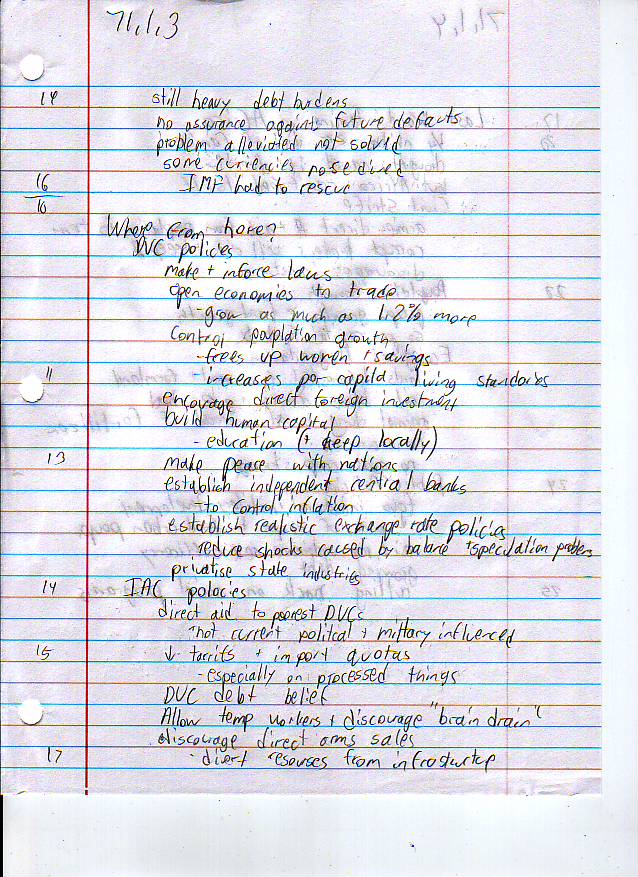 71,1,3
14 still heavy debt burdens
no assurance against future defacts
problem alleviated not solved
some curiencies nosedived
16 IMF had to rescue
10
Where from here?
DVC policies
make + inforce laws
open economies to trade
-grow as much as 1.2% more
Control pouplation growth
-frees up women + savings
11 -increases per capita living standards
encourage direct foreign investment
build human capital
-education (+ keep locally)
13 make peace with nations
establish independent central banks
-to control inflation
establish realistic exchange rate policies
reduce shocks caused by balane + speculation problems
privatise state industries
14 IAC polocies
direct aid to poorest DVCs
-not current politcal + military influenced
15 ↓ tarrifs + import quotas
-especially on processed things
DVC debt belief
Allow temp workers + discourage "brain drain"
discourage direct arms sales
17 -divert resourses from infrosturtup